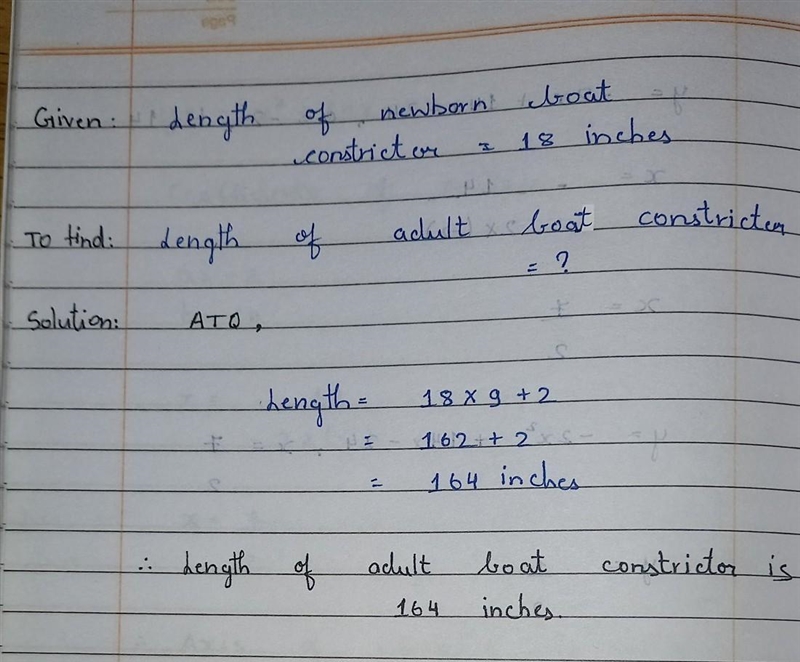 Page
Given: Length of newborn boat
constrictor = 18 inches
To find: Length of adult boat constrictor
= ?
Solution: ATQ,
Length = 18 x 9 + 2
= 162 + 2
= 164 inches
∴ Length of adult boat constrictor is
164 inches.